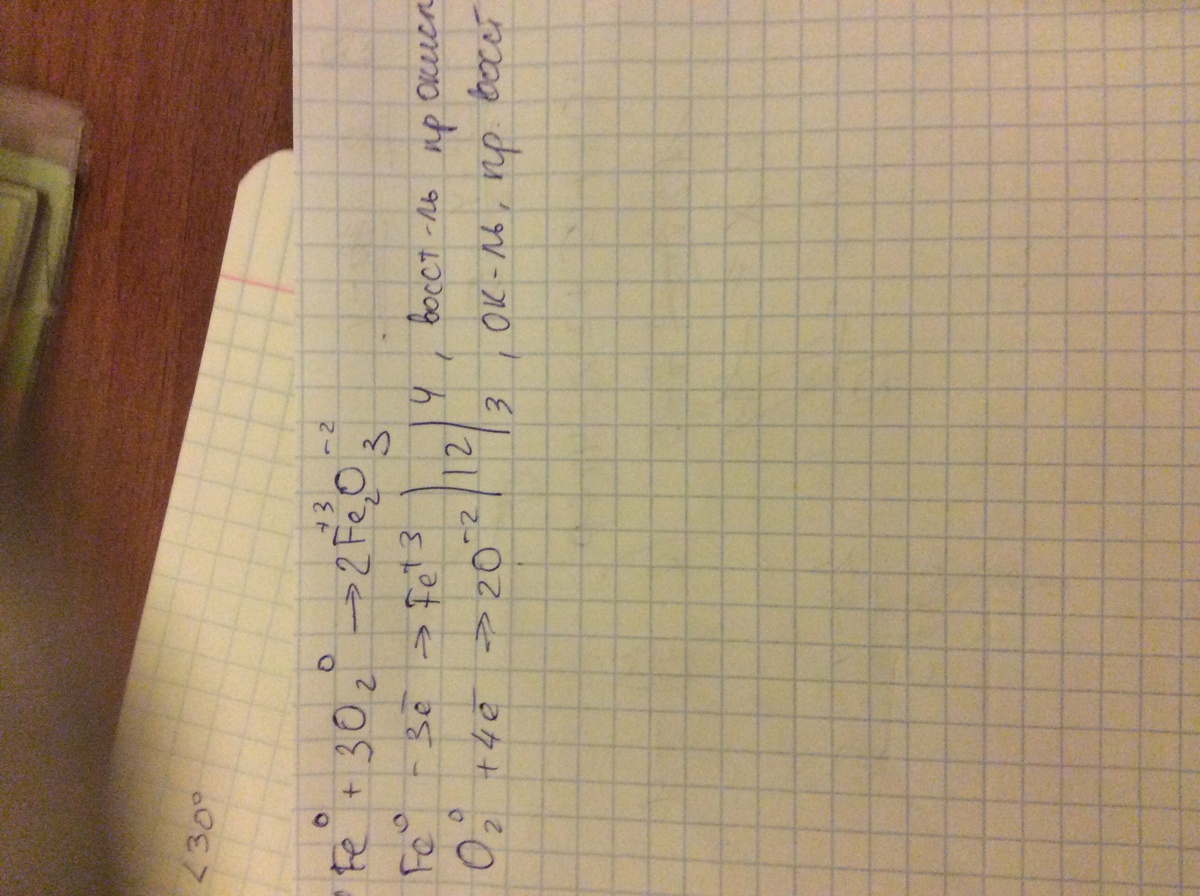 <30°
Fe⁰ + 3O₂⁰ → 2Fe₂⁺³O₃⁻²
Fe⁰ - 3ē → Fe⁺³ | 12 | 4, восст-ль пр окисл
O₂⁰ + 4ē → 2O⁻² | | 3, ок-ль, пр. восст